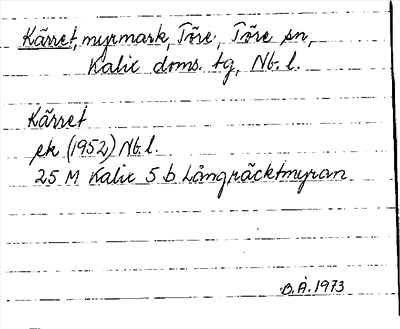 Kärret, myrmark, Töre, Töre sn,
Kalix doms. tg, Nb. l.
Kärret
ek (1952) Nb. l.
25 M Kalix 5 b Långräcktmyran
B.Å. 1973